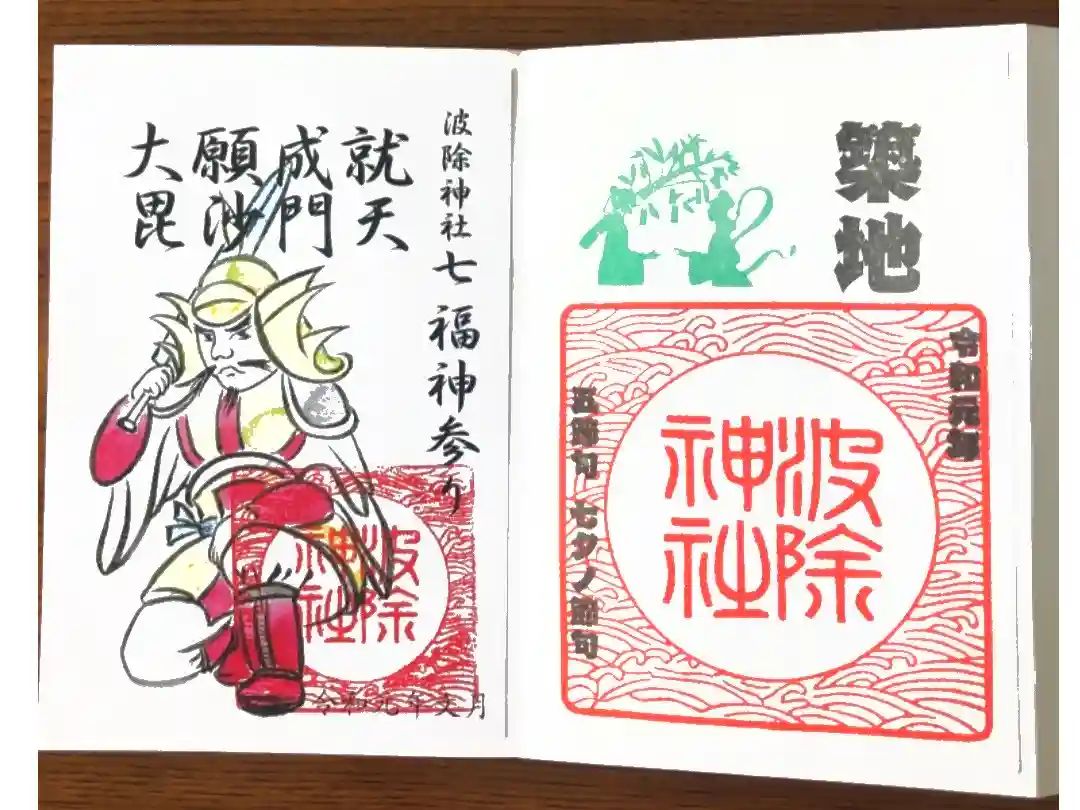 築地
令和元
波除
神社
五節句 七夕ノ節句
波除神社 七福神参り
大願成就
毘沙門天
波除
神社
令和元年文月